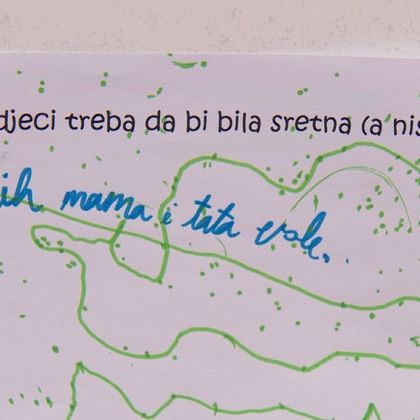 djeci treba da bi bila sretna (a nis
ih mama i tata vole..